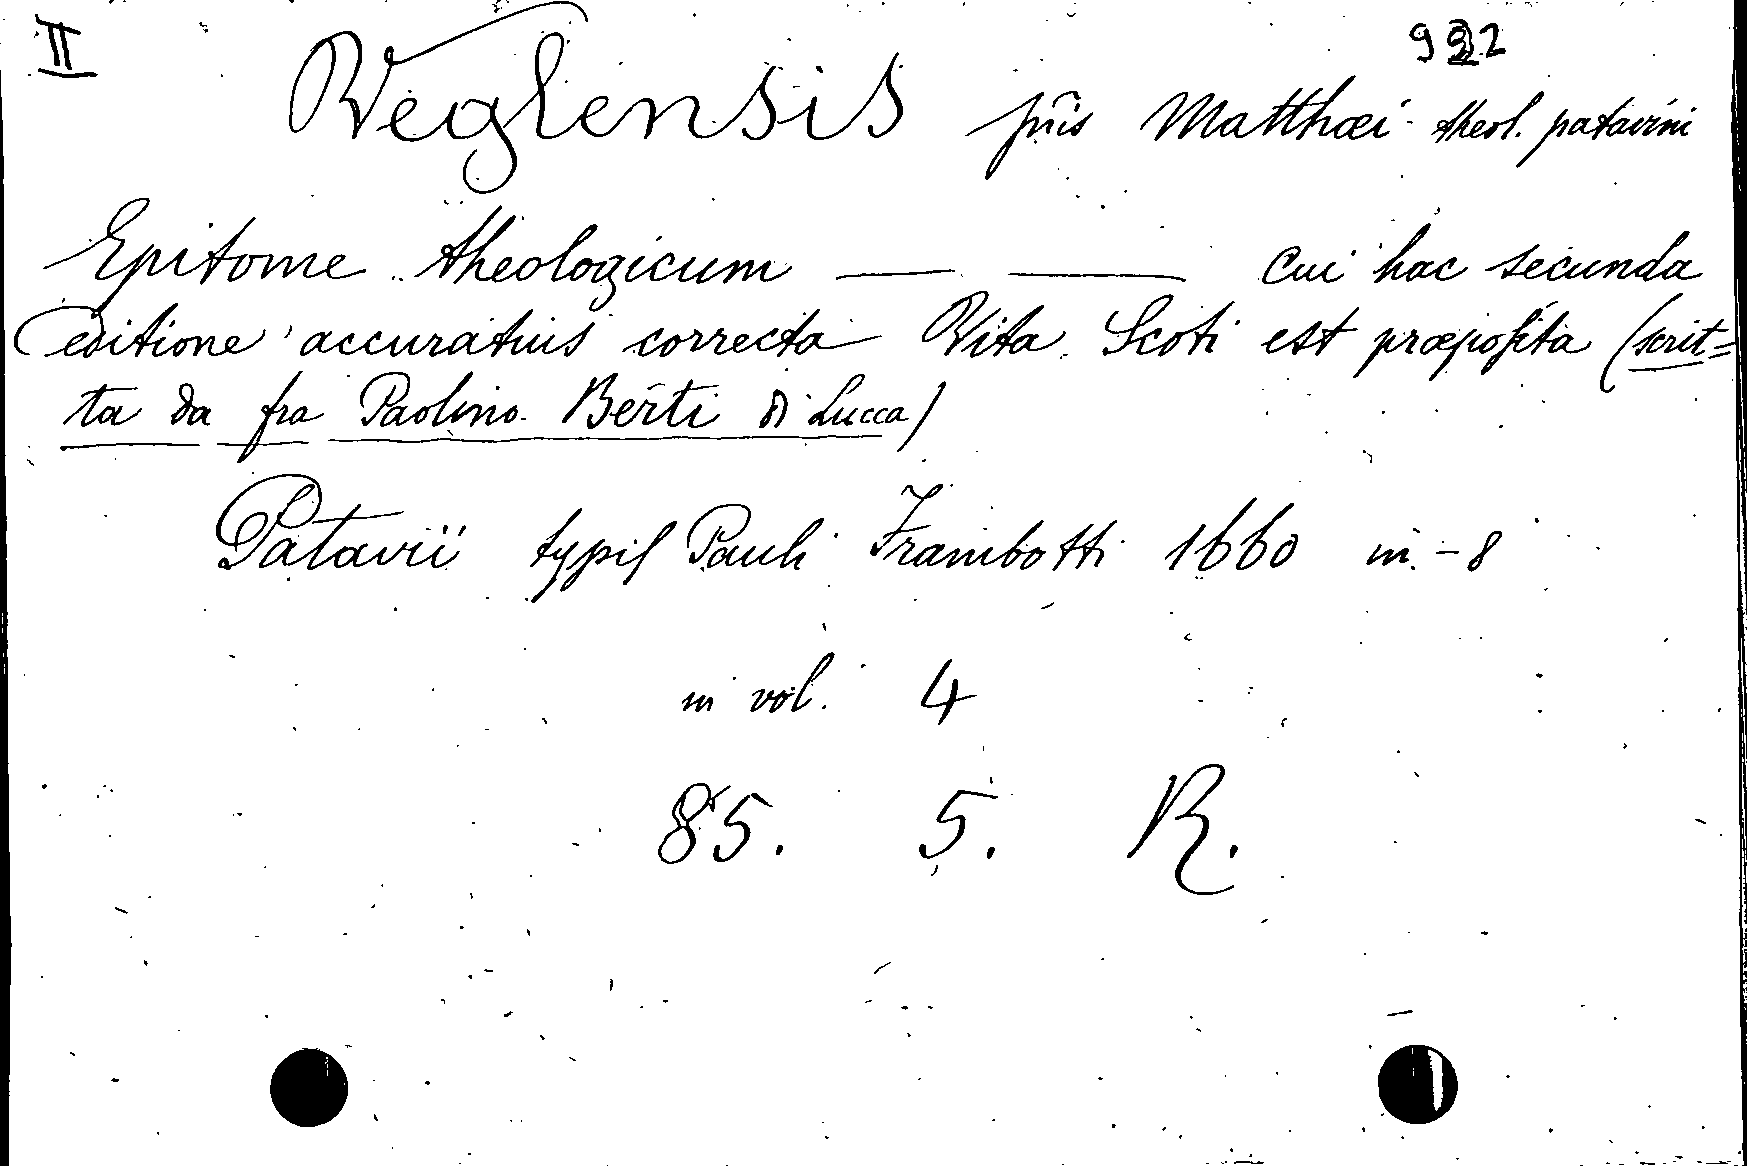 II 922
Veglensis fris Matthæi theol. patavini
Epitome theologicum — — cui hac secunda
editione accuratius correcta Vita Scoti est præposita (scrit=
ta da fra Paolino Berti di Lucca)
Patavii typis Pauli Frambotti 1660 in-8
in vol. 4
85. 5. R.